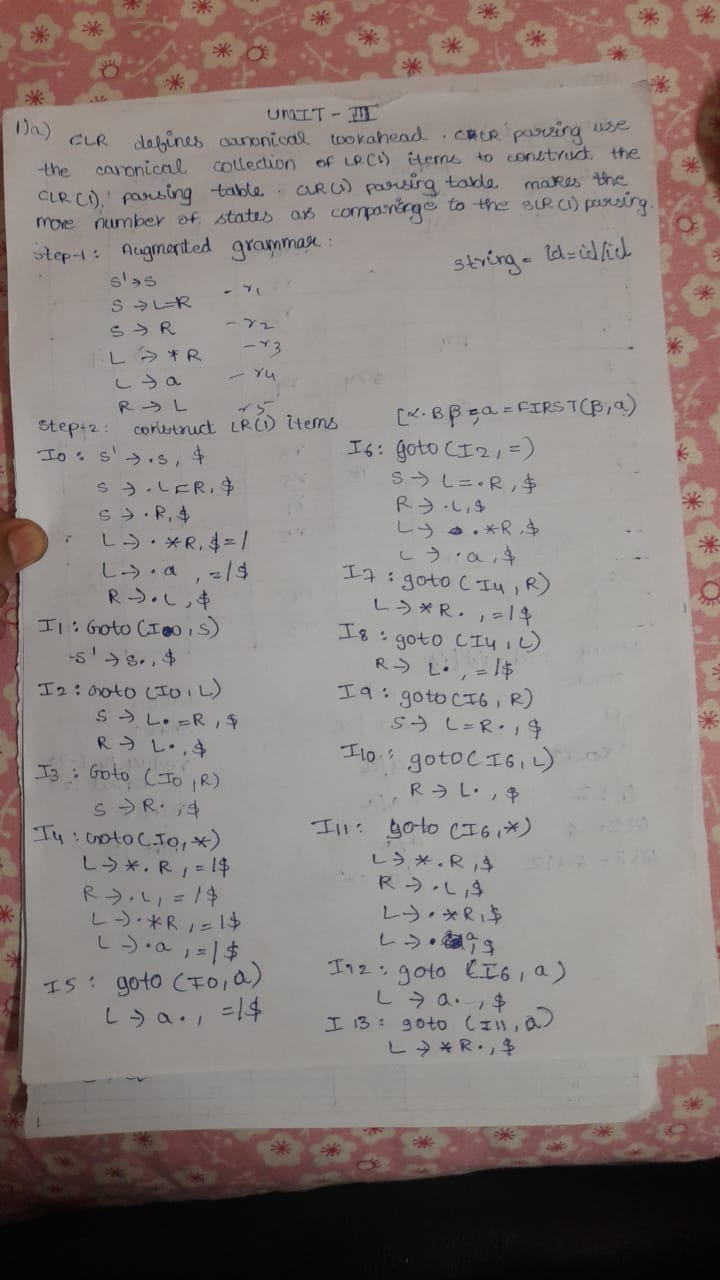 UNIT - III
1)a) CLR defines canonical lookahead. parsing use
the canonical collection of LR(1) items to construct the
CLR(1) parsing table. CLR(1) parsing table makes the
more number of states as comparinge to the SLR(1) parsing.
Step-1: Augmented grammar:
string = id=id/id
S'→S
S→L=R - r1
S→R - r2
L→*R - r3
L→a - r4
R→L r5
Step-2: construct LR(1) items
[α.Bβ, a = FIRST(β,a)
I0: S'→.S, $
S→.L=R, $
S→.R, $
L→.*R, $=/
L→.a, =/$
R→.L, $
I1: Goto(I0, S)
S'→S., $
I2: Goto(I0, L)
S→L.=R, $
R→L., $
I3: Goto(I0, R)
S→R., $
I4: Goto(I0, *)
L→*.R, =/$
R→.L, =/$
L→.*R, =/$
L→.a, =/$
I5: goto(I0, a)
L→a., =/$
I6: goto(I2, =)
S→L=.R, $
R→.L, $
L→.*R, $
L→.a, $
I7: goto(I4, R)
L→*R., =/$
I8: goto(I4, L)
R→L., =/$
I9: goto(I6, R)
S→L=R., $
I10: goto(I6, L)
R→L., $
I11: goto(I6, *)
L→*.R, $
R→.L, $
L→.*R, $
L→.a, $
I12: goto(I6, a)
L→a., $
I13: goto(I11, a)
L→*R., $